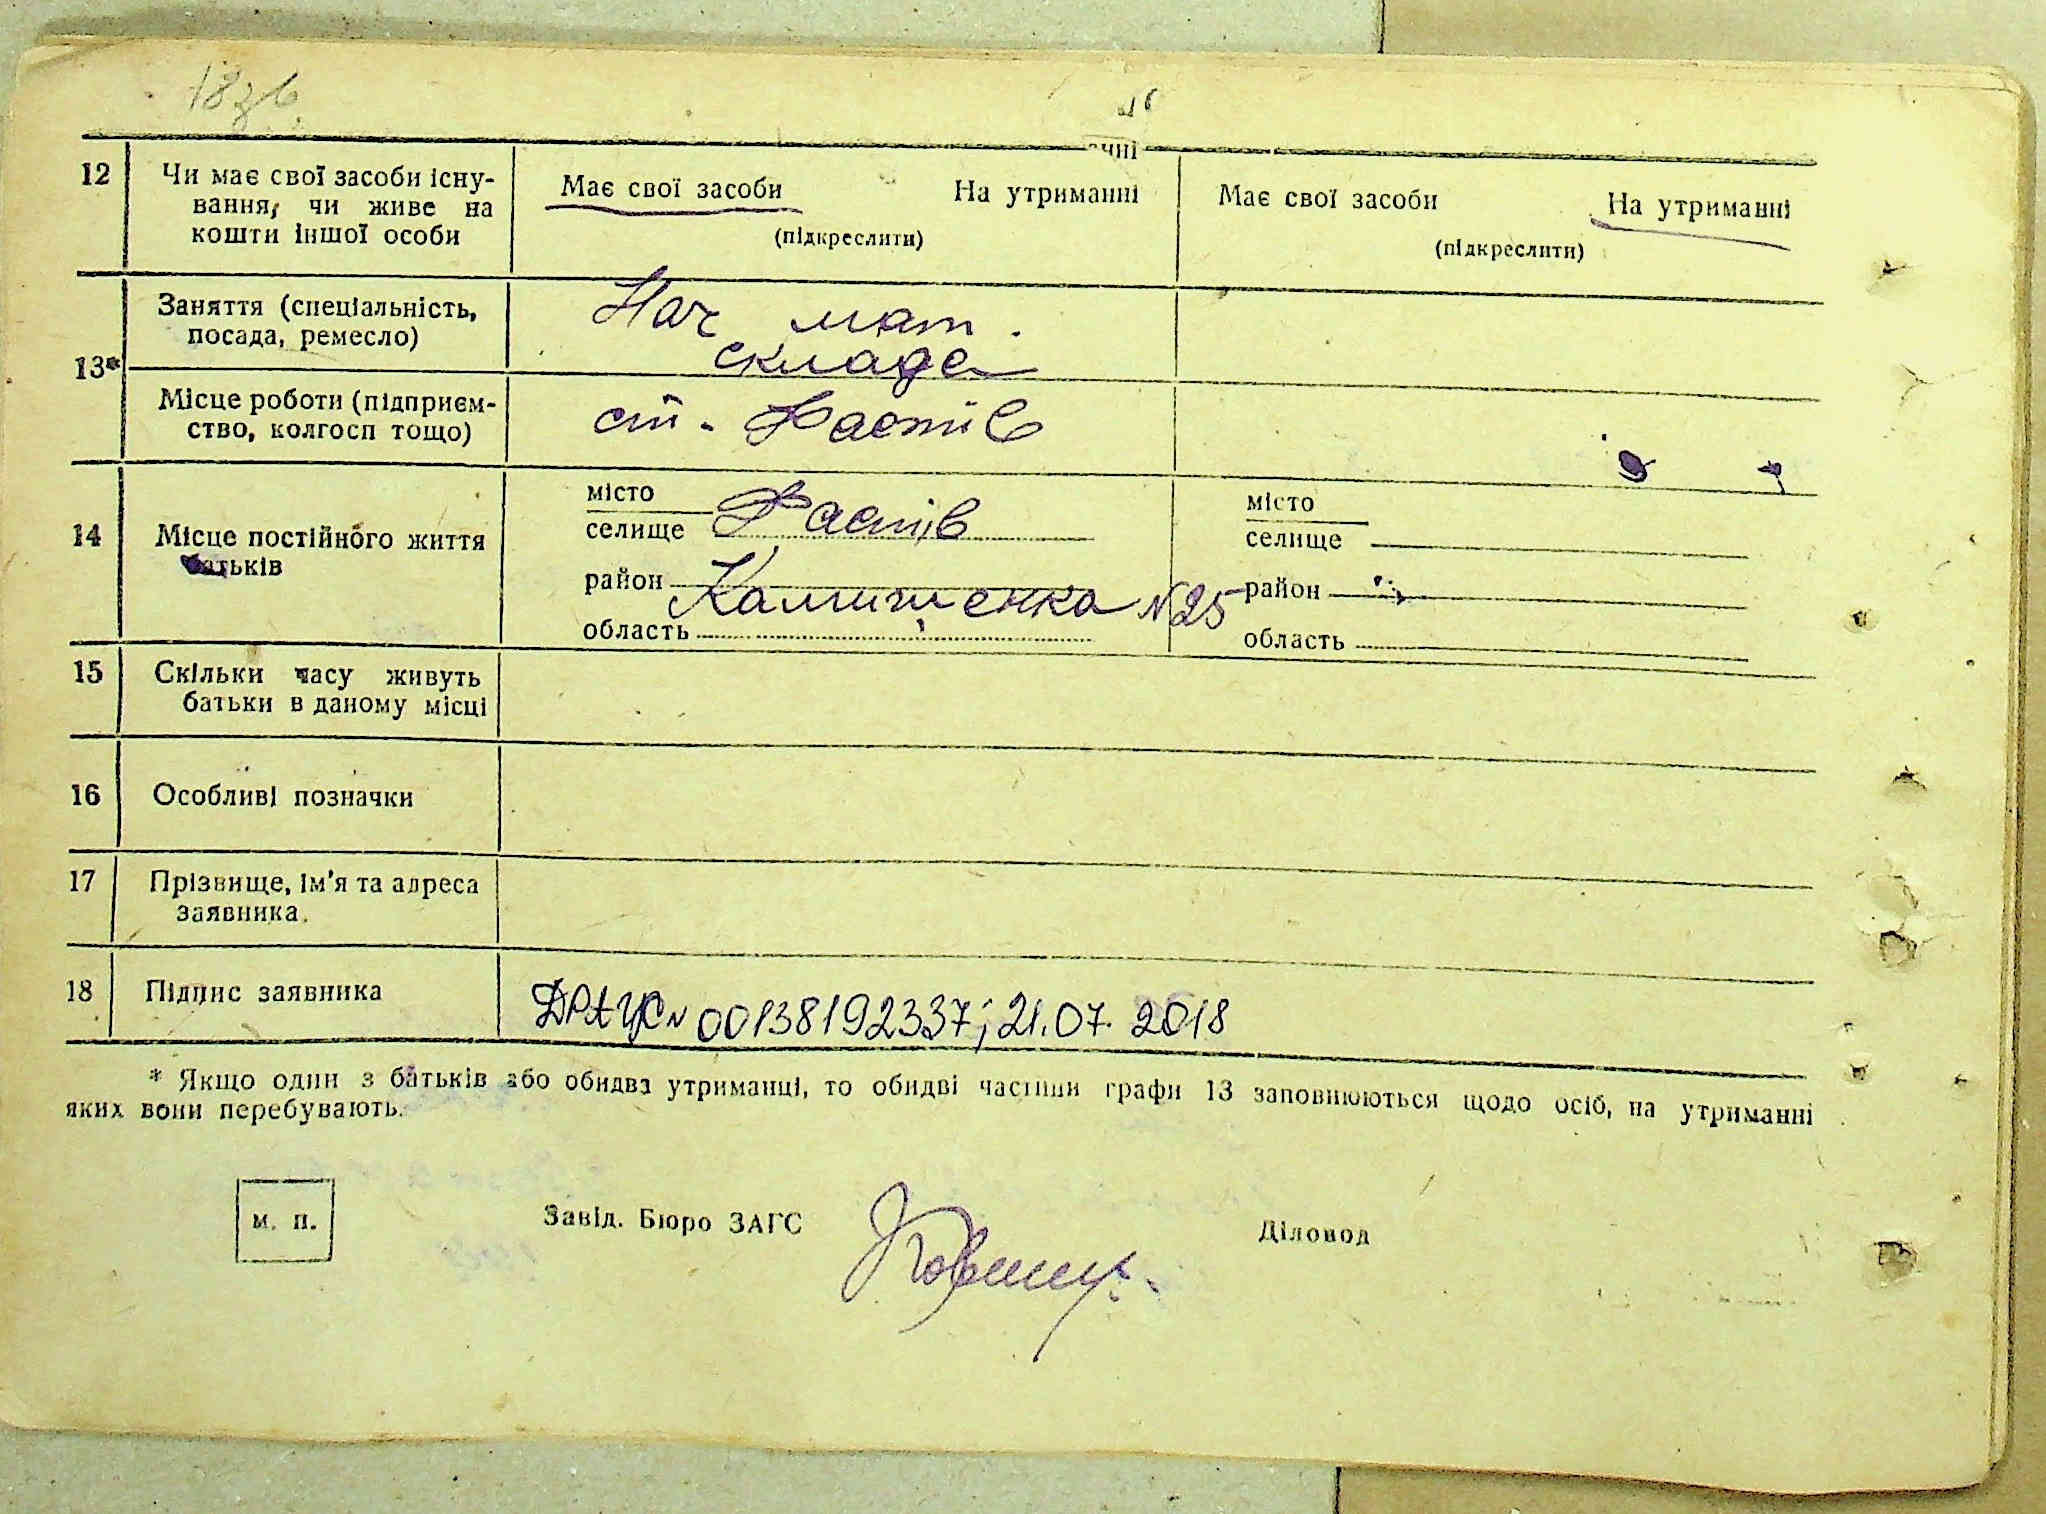 18зв
12 Чи має свої засоби існу-
вання, чи живе на
кошти іншої особи
Має свої засоби На утриманні
(підкреслити)
Має свої засоби На утриманні
(підкреслити)
13*
Заняття (спеціальність,
посада, ремесло)
Нач мат.
склада
Місце роботи (підприєм-
ство, колгосп тощо)
ст. Фастів
14 Місце постійного життя
батьків
місто
селище Фастів
район Камишенка № 25
область
місто
селище
район
область
15 Скільки часу живуть
батьки в даному місці
16 Особливі позначки
17 Прізвище, ім'я та адреса
заявника.
18 Підпис заявника
ДРАЦС № 00138192337; 21.07.2018
* Якщо один з батьків або обидва утриманці, то обидві частини графи 13 заповнюються щодо осіб, на утриманні
яких вони перебувають.
м. п.
Завід. Бюро ЗАГС
Діловод